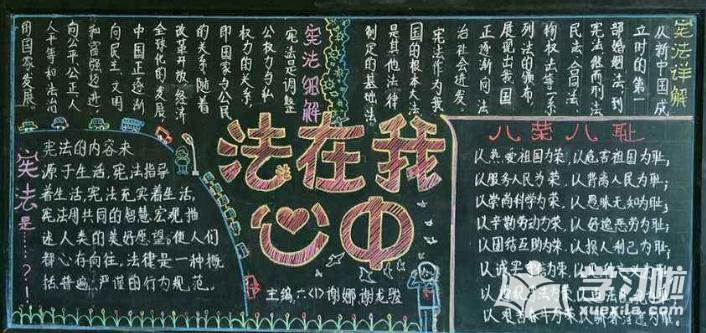 宪法详解
从新中国成
立时的第一
部婚姻法到
宪法继而刑法
民法、合同法、
物权法等一系
列法的颁布,
展现出我国
正逐渐向法
治社会进发。
宪法作为我
国的根本大法
是其他法律
制定的基础法。
宪法细解
宪法是调整
公权力与私
权力的关系,
即国家与公民
的关系。随着
改革开放经济
全球化的发展,
中国正逐渐
向民主、文明
和富强迈进,
向公平公正人
人平等和法治
的国家发展。
法在我
心中
主编:六(1)谢娜 谢龙骏
宪法是……?!
宪法的内容来
源于生活,宪法指导
着生活,宪法充实着生活,
宪法用共同的智慧宏观描
述人类的美好愿望,使人们
都心有向往。法律是一种概
括、普遍、严谨的行为规范。
八荣八耻
以热爱祖国为荣,以危害祖国为耻;
以服务人民为荣,以背离人民为耻;
以崇尚科学为荣,以愚昧无知为耻;
以辛勤劳动为荣,以好逸恶劳为耻;
以团结互助为荣,以损人利己为耻;
以诚实
以
以
学习啦
xuexila.com